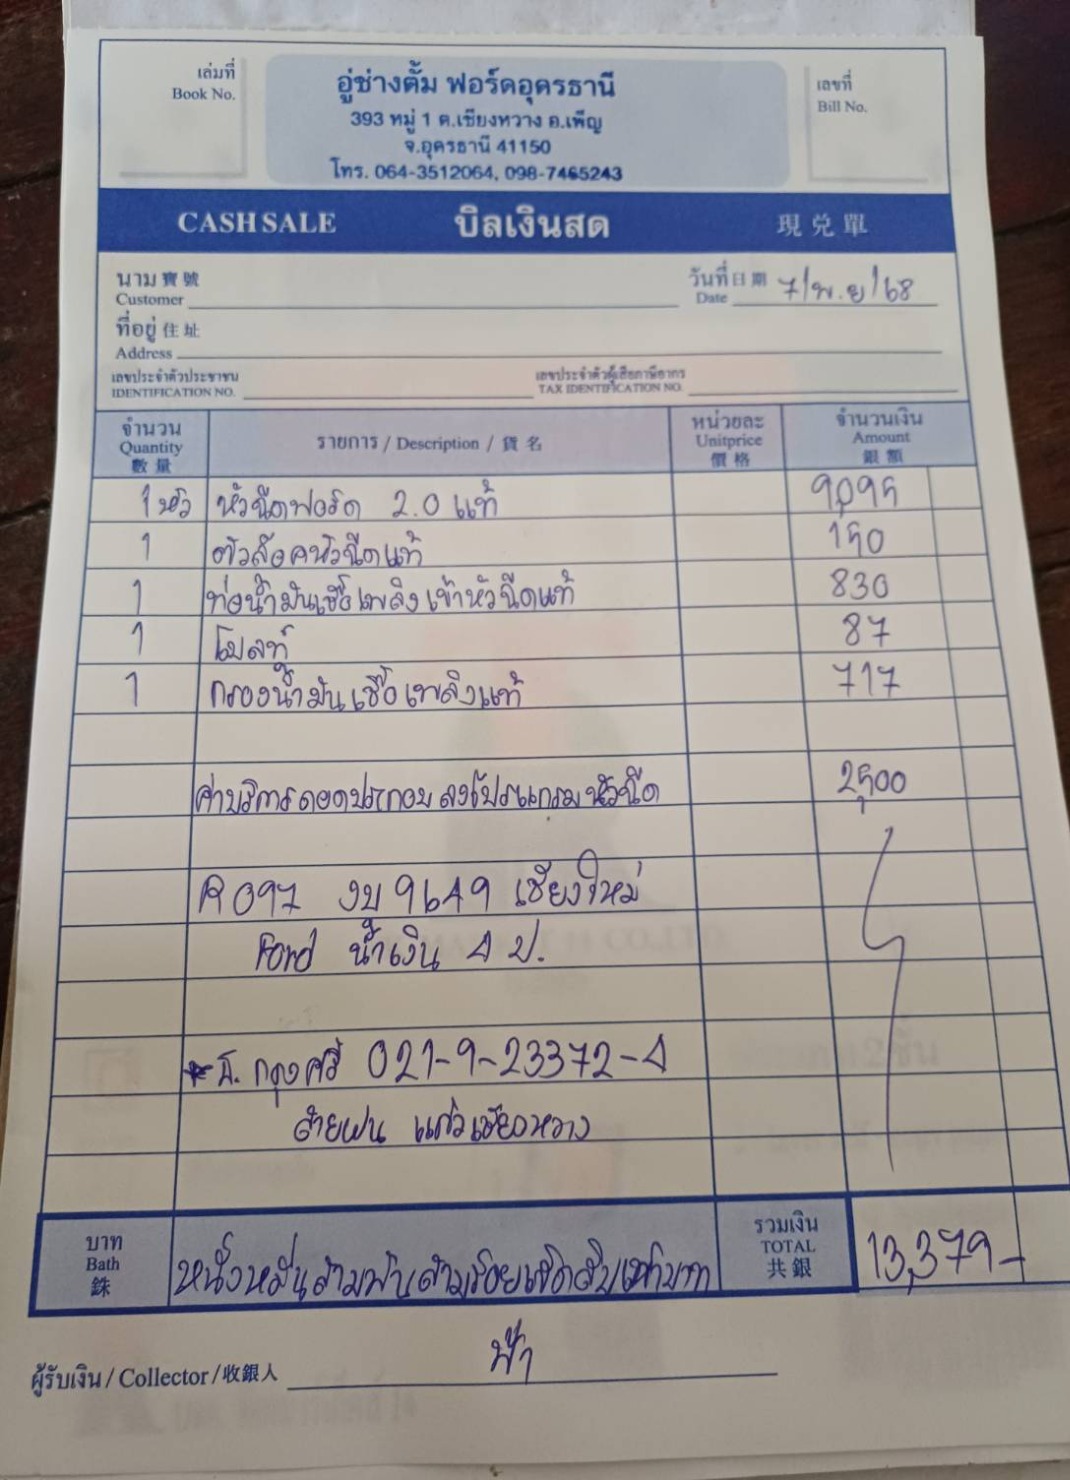 เล่มที่
Book No.
อู่ช่างตั้ม ฟอร์ดอุดรธานี
393 หมู่ 1 ต.เชียงหวาง อ.เพ็ญ
จ.อุดรธานี 41150
โทร. 064-3512064, 098-7465243
เลขที่
Bill No.
CASH SALE บิลเงินสด 現兌單
นาม 寶號
Customer
วันที่ 日期 7/พ.ย/68
Date
ที่อยู่ 住址
Address
เลขประจำตัวประชาชน
IDENTIFICATION NO.
เลขประจำตัวผู้เสียภาษีอากร
TAX IDENTIFICATION NO.
จำนวน
Quantity
數量
รายการ / Description / 貨名
หน่วยละ
Unitprice
價格
จำนวนเงิน
Amount
銀額
1 หัว หัวฉีดฟอร์ด 2.0 แท้ 9,095
1 ตัวล็อคหัวฉีดแท้ 150
1 ท่อน้ำมันเชื้อเพลิงเข้าหัวฉีดแท้ 830
1 โบลท์ 87
1 กรองน้ำมันเชื้อเพลิงแท้ 717
ค่าบริการถอดประกอบ ลงโปรแกรมหัวฉีด 2,500
R097 งบ 9649 เชียงใหม่
Ford น้ำเงิน 4 ป.
* ธ. กรุงศรี 021-9-23372-4
สายฝน แก้วเชียงหวาง
บาท
Bath
銖
หนึ่งหมื่นสามพันสามร้อยเจ็ดสิบเก้าบาท
รวมเงิน
TOTAL
共銀
13,379-
ผู้รับเงิน / Collector / 收銀人 ฟ้า